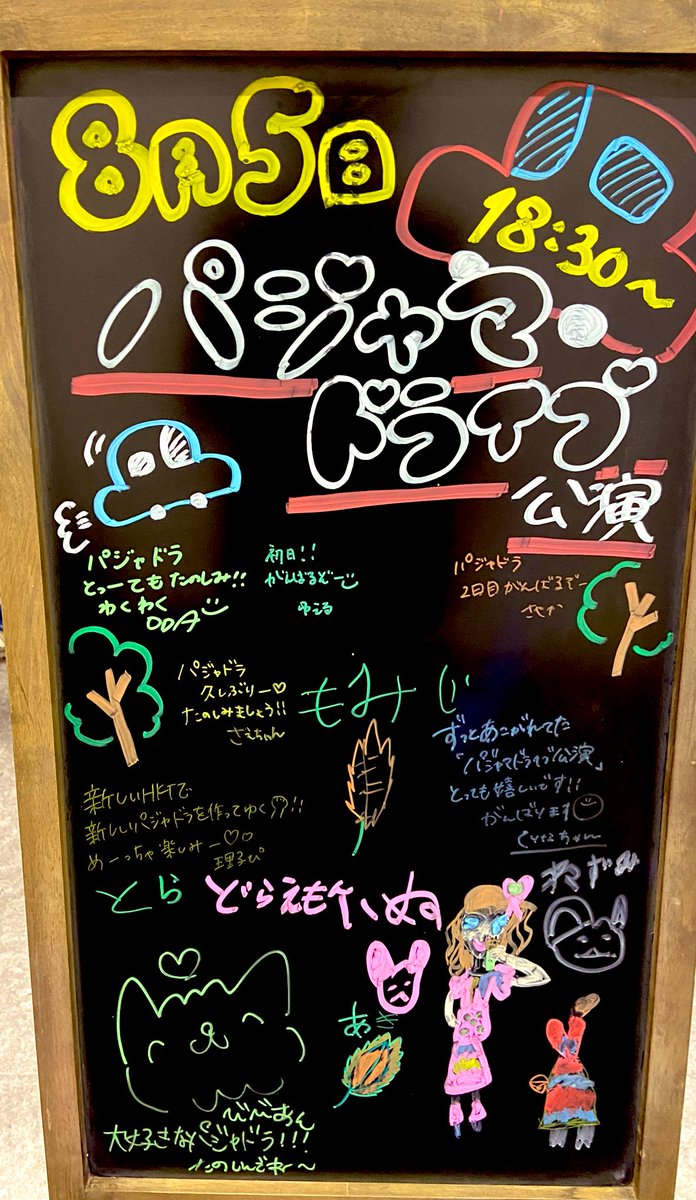 8月5日
18:30〜
パジャマ
ドライブ
公演
パジャドラ
とぅーてもたのしみ!!
わくわく
初日!!
がんばるぞー
ゆうる
パジャドラ
2日目がんばるぞー
さやか
パジャドラ
久しぶりー♡
たのしみましょう!!
さえちゃん
もみじ
ずっとあこがれてた
「パジャマドライブ公演」
とっても嬉しいです!!
がんばります
新しいHKTで
新しいパジャドラを作ってゆくぞ!!
めーっちゃ楽しみー♡♡
理子ぴ
とら
どらえもん
いぬ
ねずみ
あき
びびあん
大好きなパジャドラ!!!
たのしんでねー